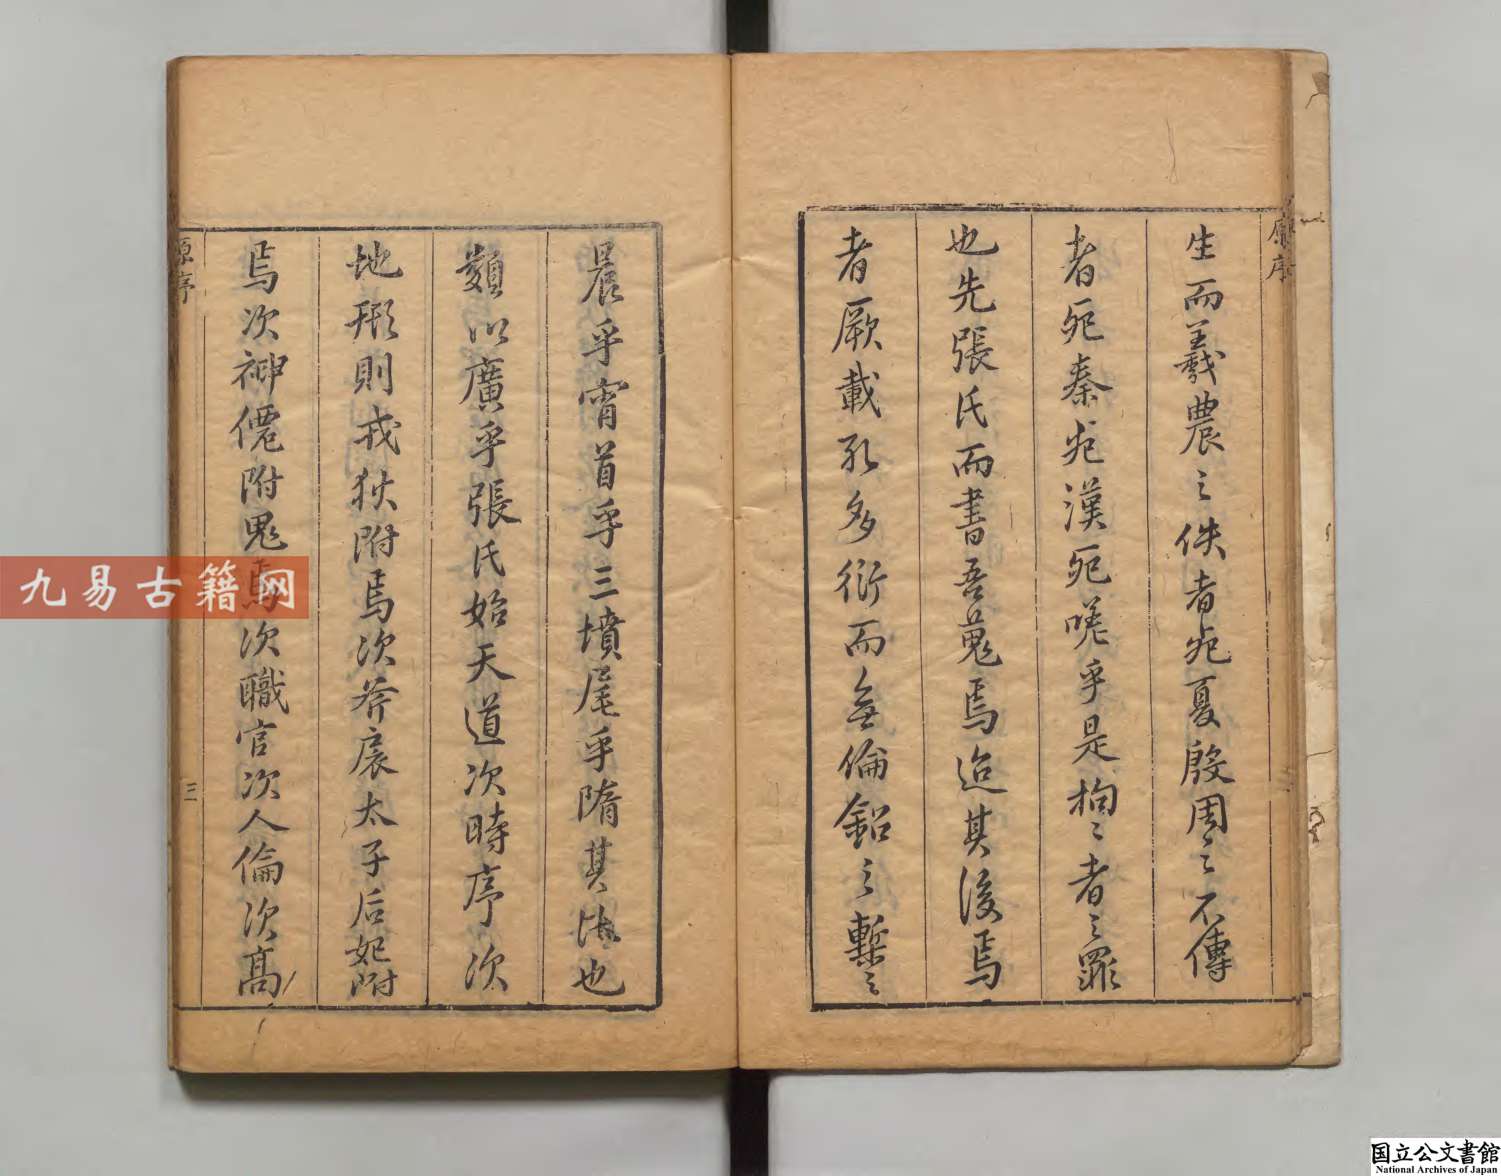 原序
生而羲農之佚者宛夏殷周之不傳
者宛秦宛漢宛嘆乎是拘〻者之罪
也先張氏而書吾蒐焉迨其後焉
者厥載孔多衍而無倫鉛之槧之
晨乎宵首乎三墳尾乎隋其法也
類以廣乎張氏始天道次時序次
地形則戎狄附焉次斧扆太子后妃附
焉次神僊附鬼焉次職官次人倫次高
原序
三
九易古籍网
国立公文書館
National Archives of Japan